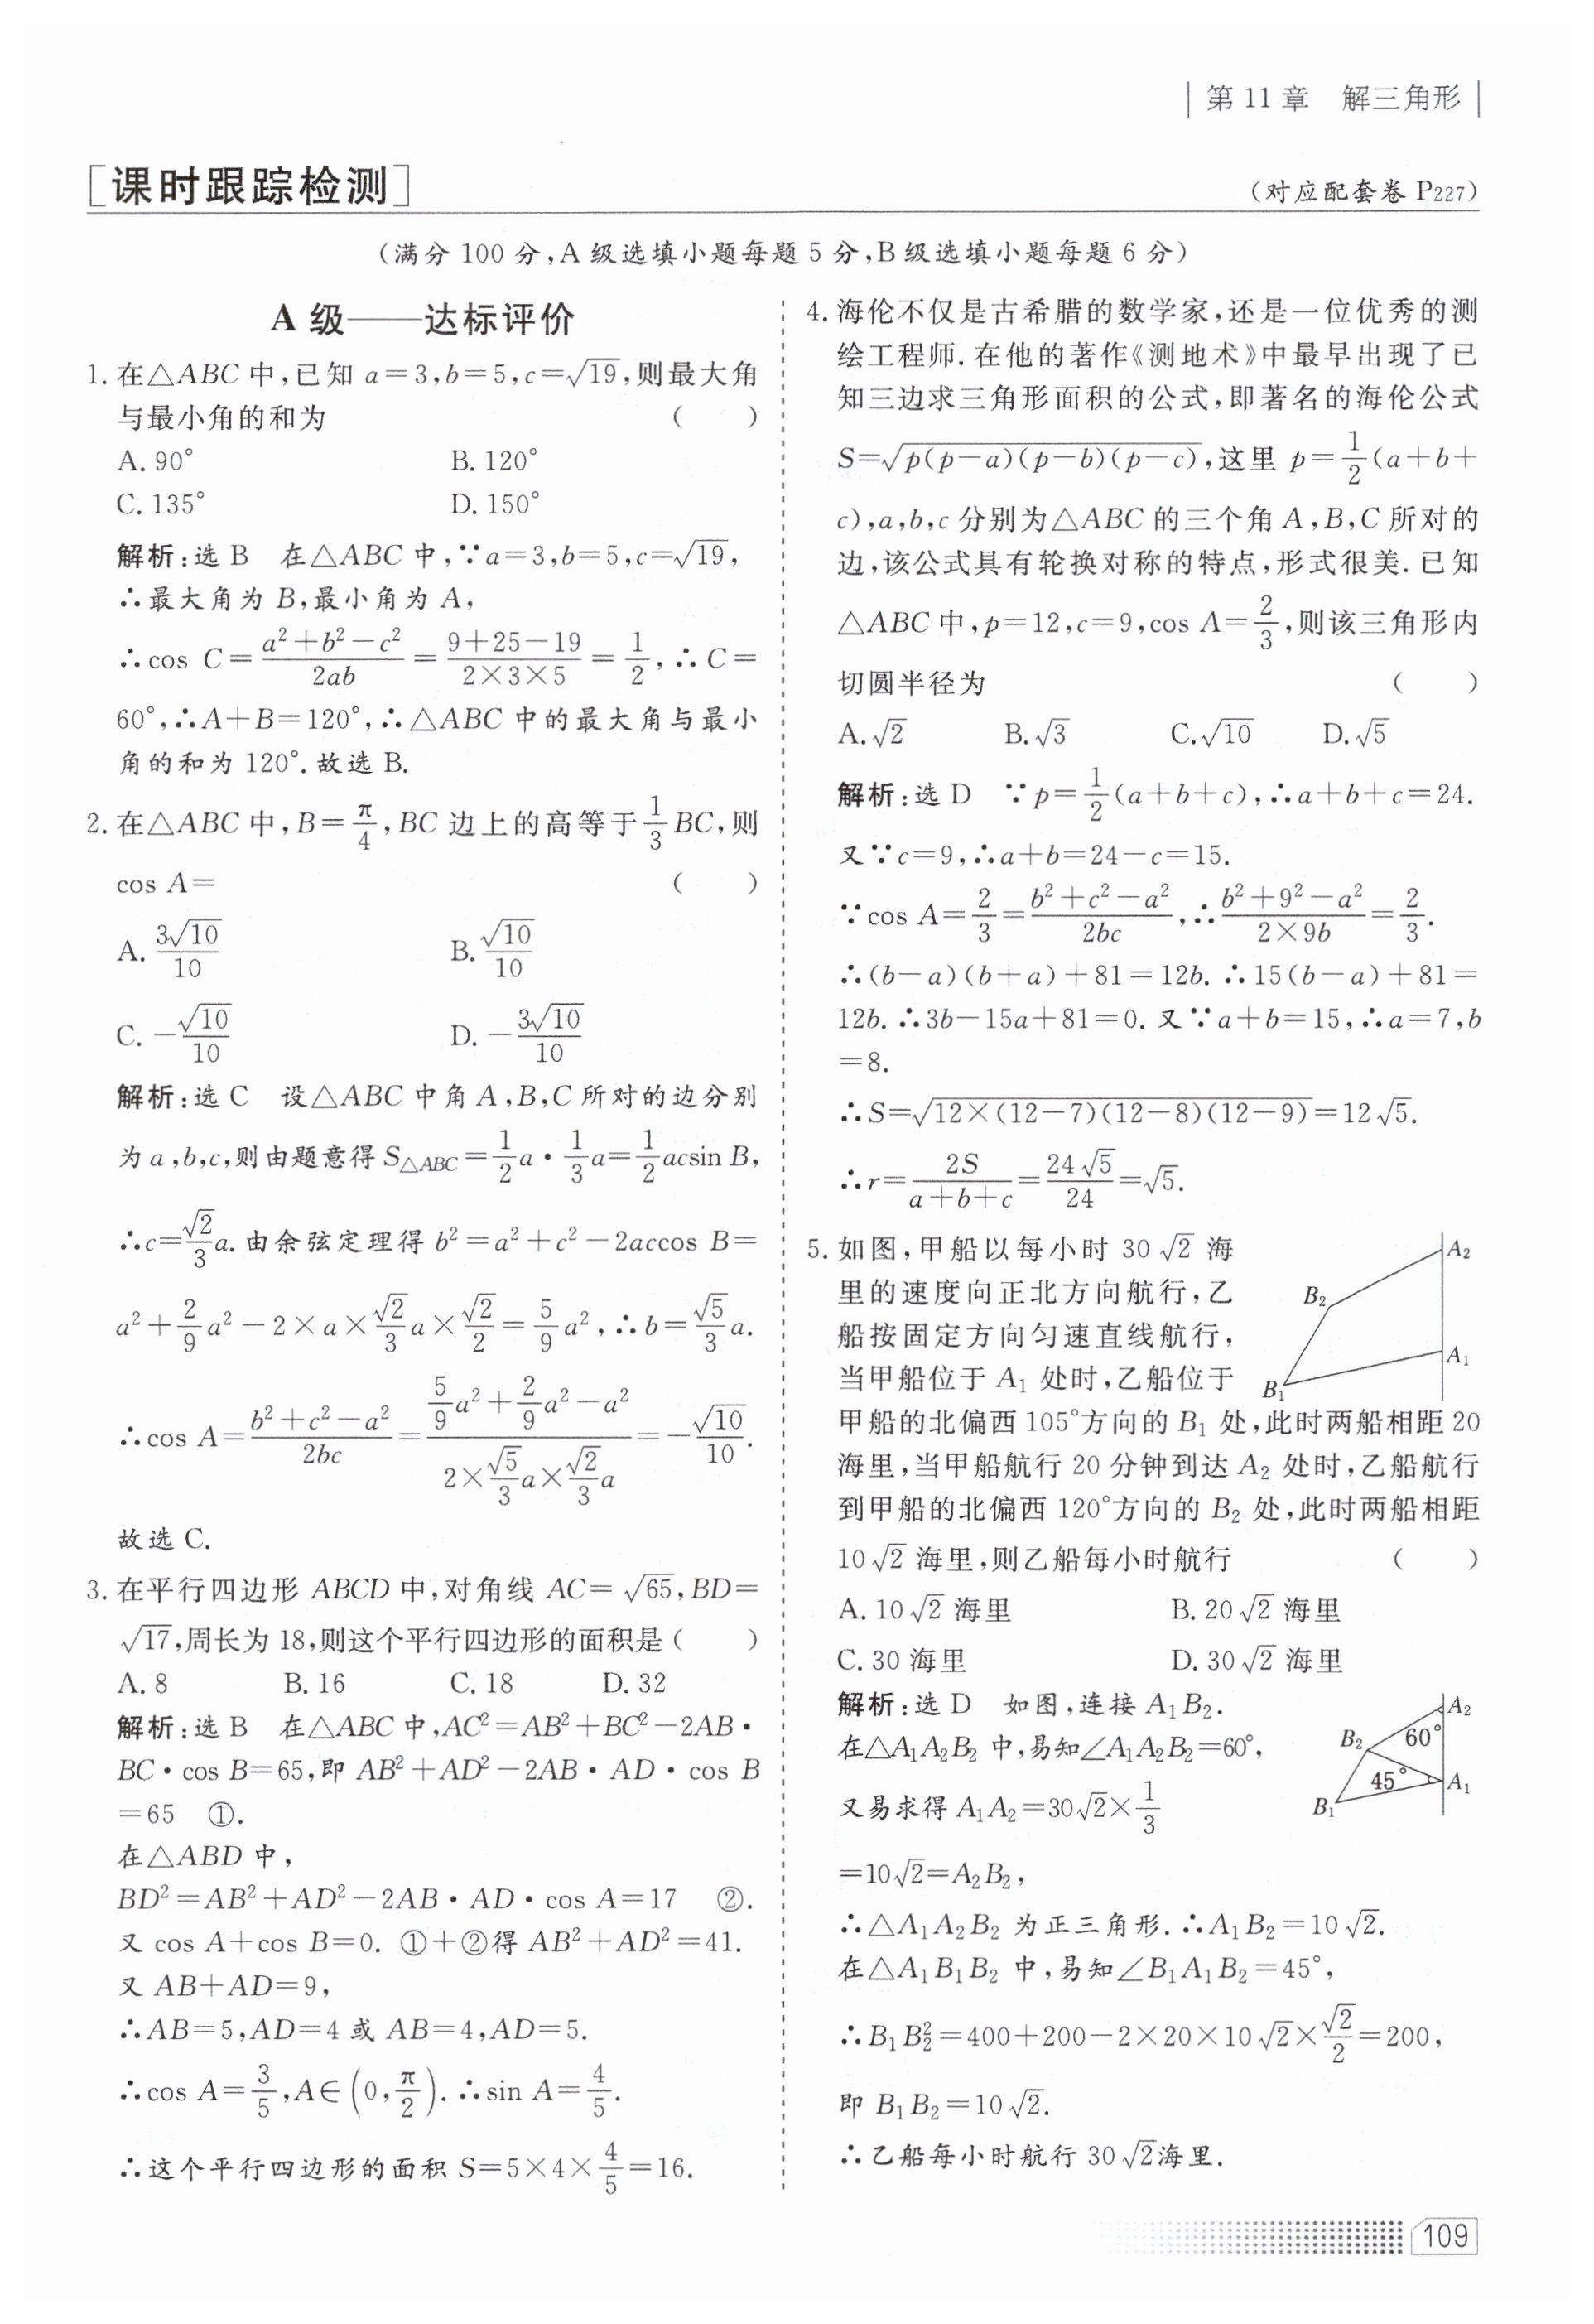 第 11 章　解三角形
[课时跟踪检测]
(对应配套卷 P227)
(满分 100 分,A 级选填小题每题 5 分,B 级选填小题每题 6 分)
A 级——达标评价
1. 在△ABC 中,已知 a=3,b=5,c=√19,则最大角
与最小角的和为 (　　)
A. 90°　B. 120°
C. 135°　D. 150°
解析:选 B　在△ABC 中,∵a=3,b=5,c=√19,
∴最大角为 B,最小角为 A,
∴cos C=(a²+b²-c²)/(2ab)=(9+25-19)/(2×3×5)=1/2,∴C=
60°,∴A+B=120°,∴△ABC 中的最大角与最小
角的和为 120°.故选 B.
2. 在△ABC 中,B=π/4,BC 边上的高等于 1/3 BC,则
cos A= (　　)
A. 3√10/10　B. √10/10
C. -√10/10　D. -3√10/10
解析:选 C　设△ABC 中角 A,B,C 所对的边分别
为 a,b,c,则由题意得 S△ABC=1/2 a·1/3 a=1/2 acsin B,
∴c=√2/3 a.由余弦定理得 b²=a²+c²-2accos B=
a²+2/9 a²-2×a×√2/3 a×√2/2=5/9 a²,∴b=√5/3 a.
∴cos A=(b²+c²-a²)/(2bc)=(5/9 a²+2/9 a²-a²)/(2×√5/3 a×√2/3 a)=-√10/10.
故选 C.
3. 在平行四边形 ABCD 中,对角线 AC=√65,BD=
√17,周长为 18,则这个平行四边形的面积是 (　　)
A. 8　B. 16　C. 18　D. 32
解析:选 B　在△ABC 中,AC²=AB²+BC²-2AB·
BC·cos B=65,即 AB²+AD²-2AB·AD·cos B
=65　①.
在△ABD 中,
BD²=AB²+AD²-2AB·AD·cos A=17　②.
又 cos A+cos B=0. ①+②得 AB²+AD²=41.
又 AB+AD=9,
∴AB=5,AD=4 或 AB=4,AD=5.
∴cos A=3/5,A∈(0,π/2).∴sin A=4/5.
∴这个平行四边形的面积 S=5×4×4/5=16.
4. 海伦不仅是古希腊的数学家,还是一位优秀的测
绘工程师.在他的著作《测地术》中最早出现了已
知三边求三角形面积的公式,即著名的海伦公式
S=√(p(p-a)(p-b)(p-c)),这里 p=1/2(a+b+
c),a,b,c 分别为△ABC 的三个角 A,B,C 所对的
边,该公式具有轮换对称的特点,形式很美.已知
△ABC 中,p=12,c=9,cos A=2/3,则该三角形内
切圆半径为 (　　)
A.√2　B.√3　C.√10　D.√5
解析:选 D　∵p=1/2(a+b+c),∴a+b+c=24.
又∵c=9,∴a+b=24-c=15.
∵cos A=2/3=(b²+c²-a²)/(2bc),∴(b²+9²-a²)/(2×9b)=2/3.
∴(b-a)(b+a)+81=12b.∴15(b-a)+81=
12b.∴3b-15a+81=0.又∵a+b=15,∴a=7,b
=8.
∴S=√(12×(12-7)(12-8)(12-9))=12√5.
∴r=2S/(a+b+c)=24√5/24=√5.
5. 如图,甲船以每小时 30√2 海
里的速度向正北方向航行,乙
船按固定方向匀速直线航行,
当甲船位于 A₁ 处时,乙船位于
甲船的北偏西 105°方向的 B₁ 处,此时两船相距 20
海里,当甲船航行 20 分钟到达 A₂ 处时,乙船航行
到甲船的北偏西 120°方向的 B₂ 处,此时两船相距
10√2 海里,则乙船每小时航行 (　　)
A₂
B₂
A₁
B₁
A. 10√2 海里　B. 20√2 海里
C. 30 海里　D. 30√2 海里
解析:选 D　如图,连接 A₁B₂.
在△A₁A₂B₂ 中,易知∠A₁A₂B₂=60°,
又易求得 A₁A₂=30√2×1/3
=10√2=A₂B₂,
A₂
B₂ 60°
45° A₁
B₁
∴△A₁A₂B₂ 为正三角形.∴A₁B₂=10√2.
在△A₁B₁B₂ 中,易知∠B₁A₁B₂=45°,
∴B₁B₂²=400+200-2×20×10√2×√2/2=200,
即 B₁B₂=10√2.
∴乙船每小时航行 30√2海里.
109